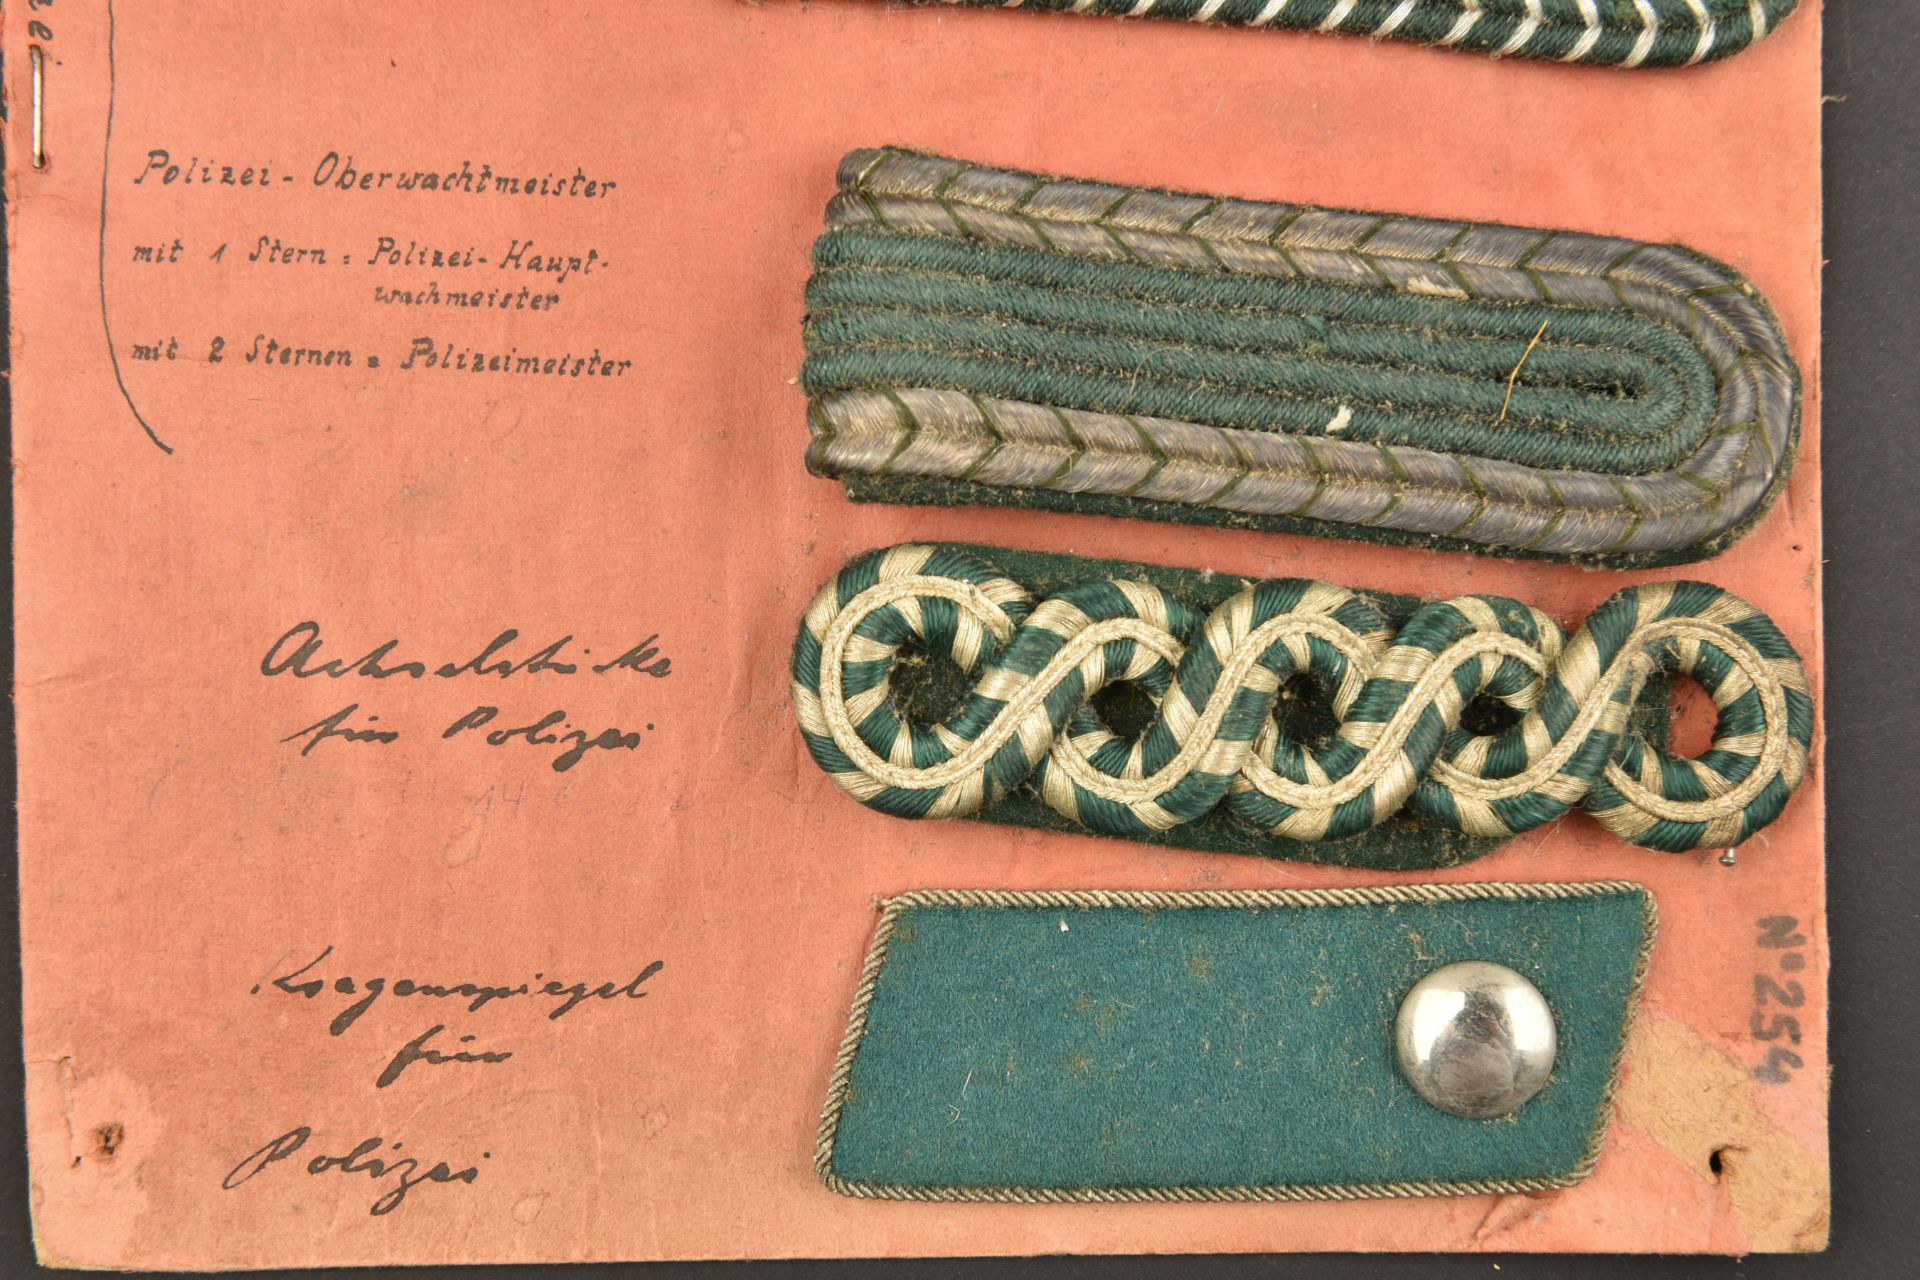 zei
Polizei - Oberwachtmeister
mit 1 Stern = Polizei - Haupt-
wachmeister
mit 2 Sternen = Polizeimeister
Achselstücke
für Polizei
Kragenspiegel
für
Polizei
N° 2554